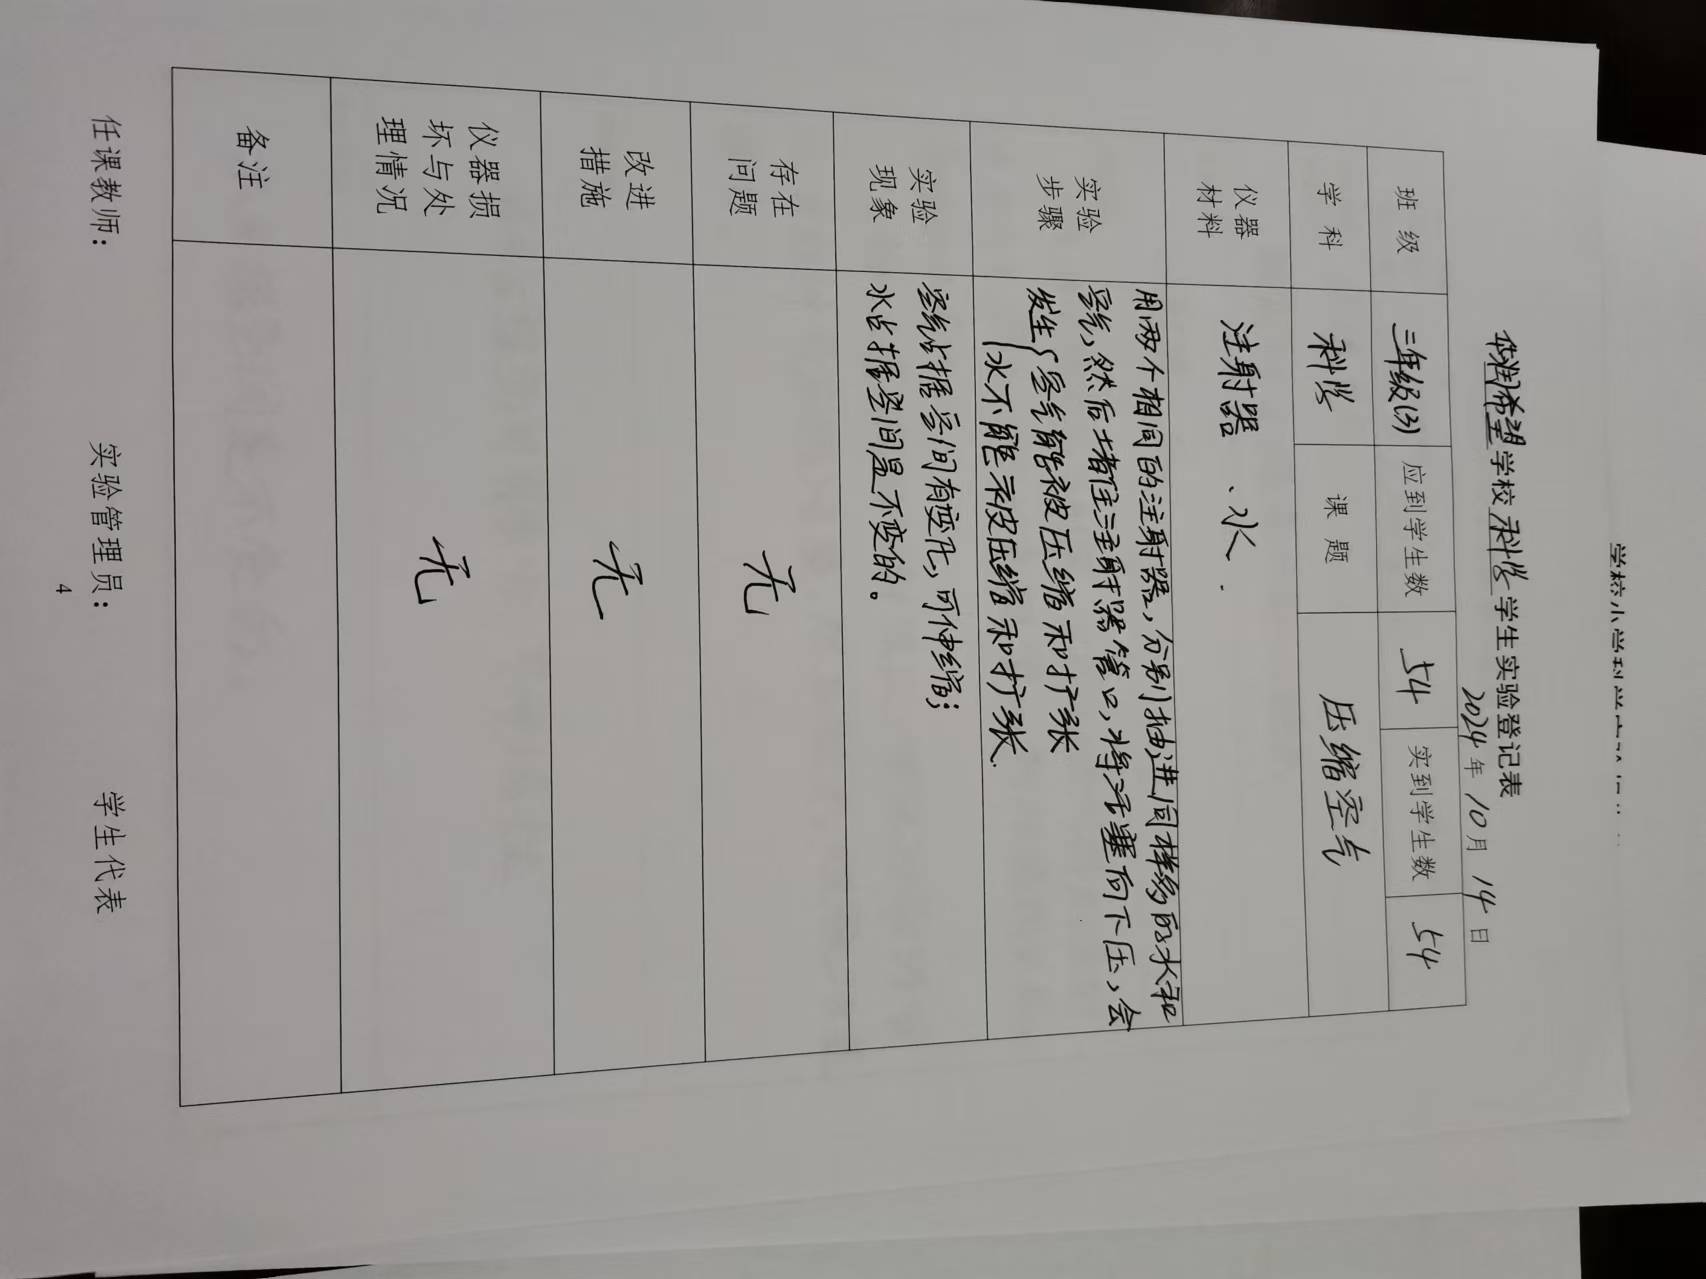 华润希望学校科学学生实验登记表
2024年10月14日
班级 三年级(3) 应到学生数 54 实到学生数 54
学科 科学 课题 压缩空气
仪器材料 注射器、水.
实验步骤
用两个相同的注射器,分别抽进同样多的水和
空气,然后堵住注射器管口,将活塞向下压,会
发生{空气能被压缩和扩张
水不能被压缩和扩张.
实验现象
空气占据空间有变化,可伸缩;
水占据空间是不变的。
存在问题 无
改进措施 无
仪器损坏与处理情况 无
备注
任课教师: 实验管理员: 学生代表
4